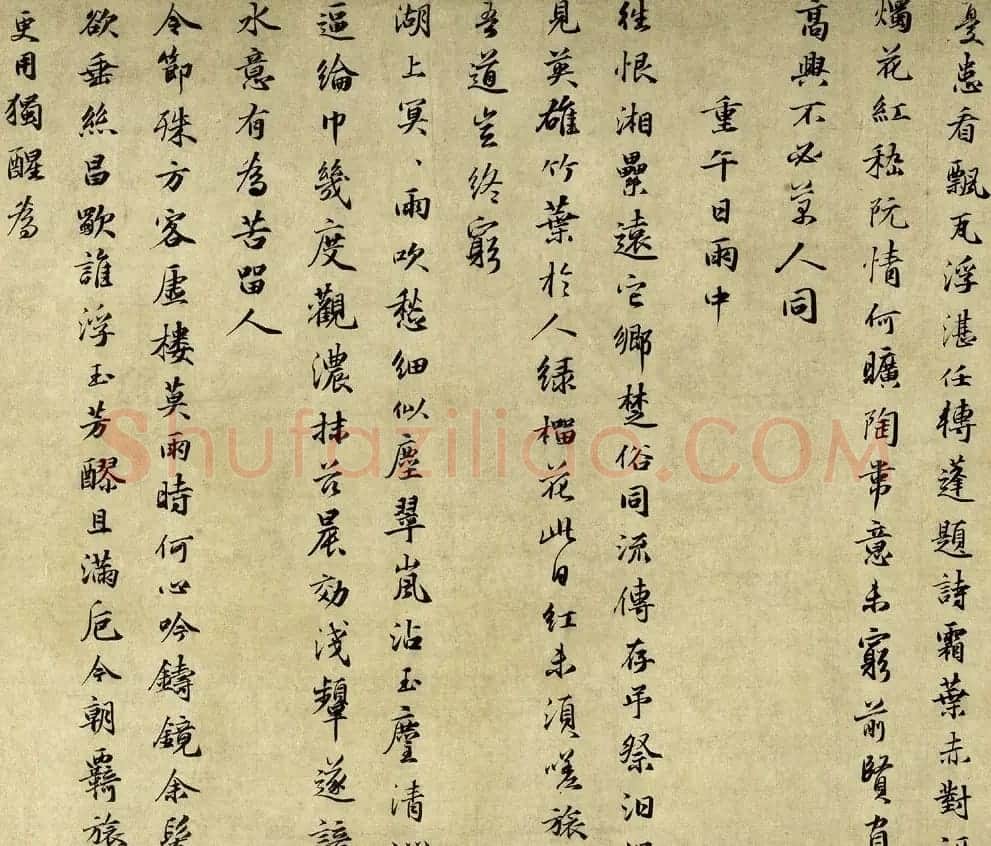 是患看飄瓦浮湛任轉蓬題詩霜葉赤對
燭花紅嵇阮情何曠陶韋意未窮前賢
高興不必万人同
重午日雨中
往恨湘纍遠它鄉楚俗同流傳存弔祭汨
見英雄竹葉於人綠榴花此日紅未須嗟旅
吾道豈終窮
湖上冥、雨吹愁細似塵翠嵐沾玉麈清
逼綸巾幾度觀濃抹茲晨効淺顰遂
水意有為苦留人
令節殊方客虛樓莫雨時何心吟鑄鏡余髩
欲垂絲昌歜誰浮玉芳醪且滿卮今朝羈旅
更用獨醒為
Shufaziliao.COM